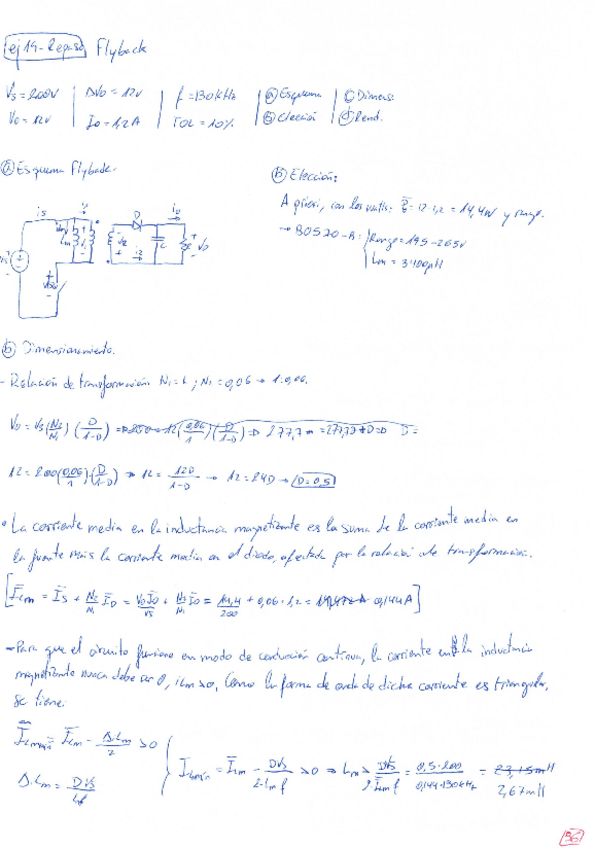 ej 19-Repaso Flyback
Vs=200V | ΔVo=12V | f=130kHz | ⓐ Esquema | ⓒ Dimens.
Vo=12V | Io=1,2A | TOL=10% | ⓑ Elección | ⓓ Rend.
ⓐ Esquema Flyback.
ⓑ Elección:
A priori, con los watts: P=12·1,2=14,4W y rango.
→ 80520-B: Rango=195-265V
Lm=3400μH
is
Lm
D
io
C
Vo
ⓑ Dimensionamiento.
- Relación de transformación N1=1; N1=0,06 → 1:0,06.
Vo=Vs(N2/N1)(D/1-D)
12=200(0,06/1)(D/1-D) → 12=12D/1-D → 12=24D → D=0,5
• La corriente media en la inductancia magnetizante es la suma de la corriente media en
la fuente más la corriente media en el diodo, afectada por la relación de transformación.
[ILm = Is + N2/N1 ID = Vo Io/Vs + N2/N1 Io = 14,4/200 + 0,06·1,2 = 0,144A]
- Para que el circuito funcione en modo de conducción continua, la corriente en la inductancia
magnetizante nunca debe ser 0, iLm>0, como la forma de onda de dicha corriente es triangular,
se tiene:
ILmín = ILm - ΔiLm/2 > 0
ILmín = ILm - DVs/2·Lm f > 0 → Lm > DVs/2 ILm f = 0,5·200/0,144·130kHz = 2,67mH
ΔiLm = DVs/Lf
36